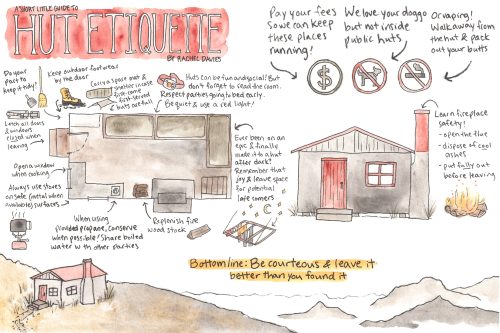 A SHORT LITTLE GUIDE TO
HUT ETIQUETTE
BY RACHEL DAVIES
Pay your fees
so we can keep
these places
running!
We love your doggo
but not inside
public huts
Or vaping!
Walk away from
the hut & pack
out your butts
Do your
part to
keep it tidy!
Keep outdoor footwear
by the door
Carry a spare mat &
shelter in case
first-come
first-served
huts are full
Huts can be fun and social! But
don't forget to read the room.
Respect parties going to bed early.
Be quiet & use a red light!
Latch all doors
& windows
closed when
leaving
Open a window
when cooking
Always use stoves
on safe (metal when
available) surfaces
When using
provided propane, conserve
when possible! Share boiled
water with other parties
Replenish fire
wood stock
Ever been on an
epic & finally
made it to a hut
after dark?
Remember that
joy & leave space
for potential
late comers
Learn fireplace
safety!
- open the flue
- dispose of cool
ashes
- put fully out
before leaving
Bottom line: Be courteous & leave it
better than you found it